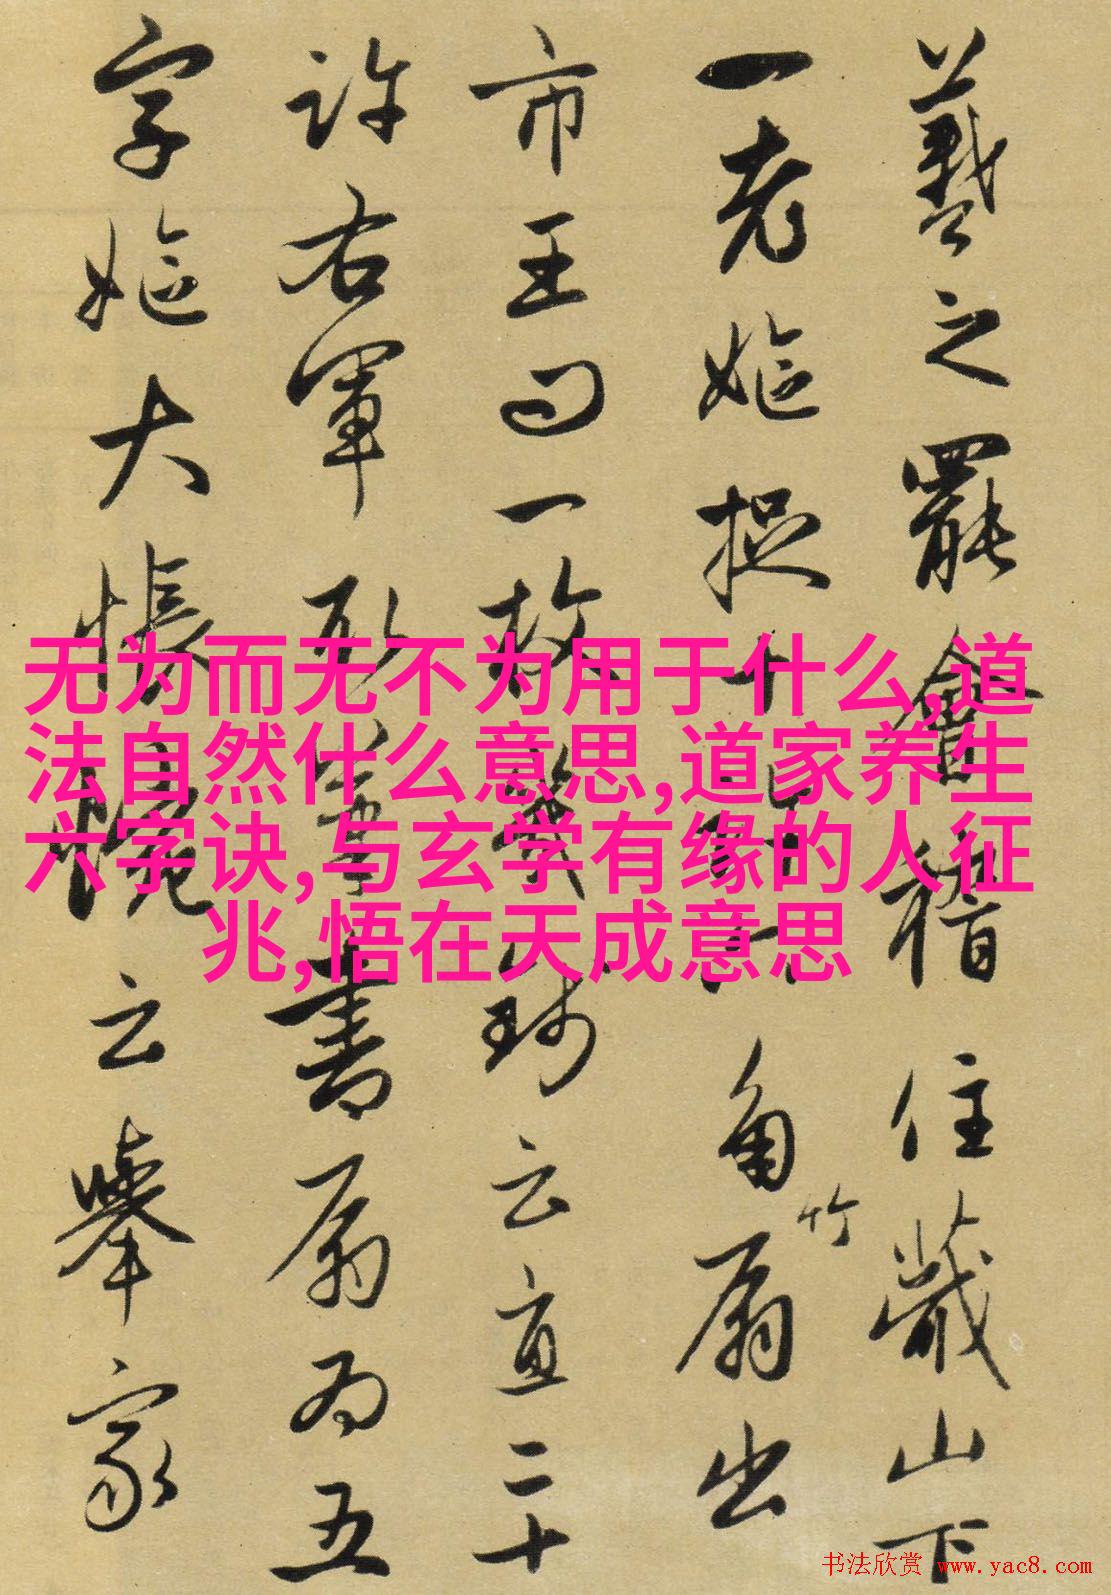 羲之罷會稽住蕺山下
一老嫗捉十許六角竹扇出
市王問一枚幾錢云直二十
許右軍取筆書扇為五
字嫗大悵惋云舉家
无为而无不为用于什么,道
法自然什么意思,道家养生
六字诀,与玄学有缘的人征
兆,悟在天成意思
书法欣赏 www.yac8.com